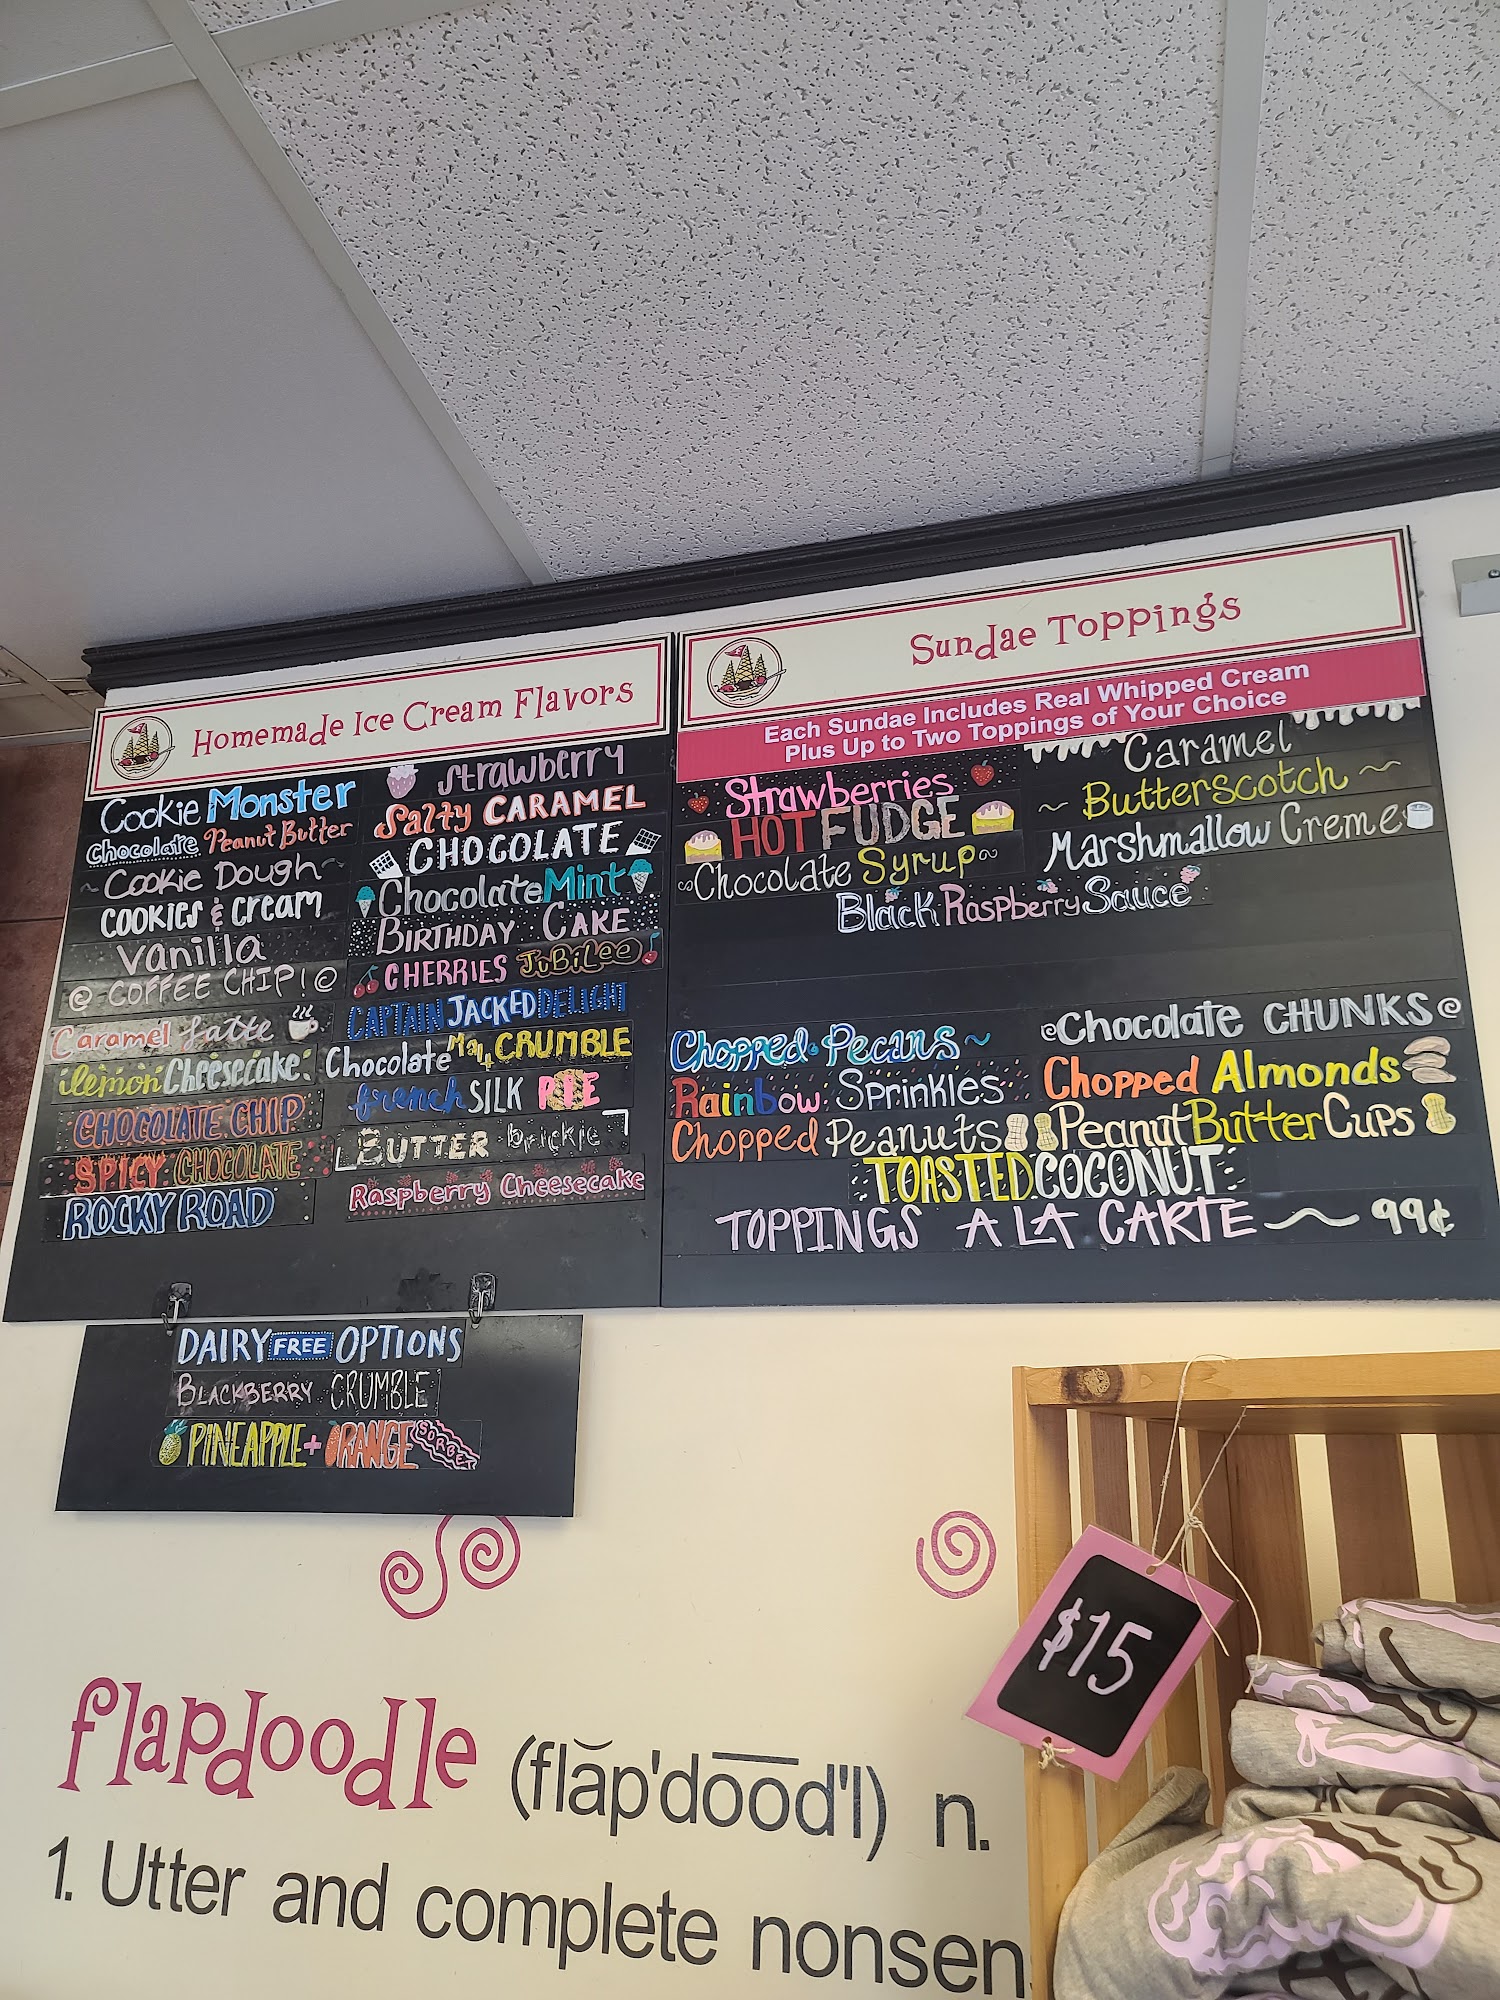 Homemade Ice Cream Flavors
Cookie Monster
Chocolate Peanut Butter
Cookie Dough
Cookies & Cream
Vanilla
COFFEE CHIP!
Caramel Latte
Lemon Cheesecake
CHOCOLATE CHIP
SPICY CHOCOLATE
ROCKY ROAD
Strawberry
Salty CARAMEL
CHOCOLATE
Chocolate Mint
BIRTHDAY CAKE
CHERRIES JuBiLee
CAPTAIN JACKED DELIGHT
Chocolate Malt CRUMBLE
french SILK PIE
BUTTER brickle
Raspberry Cheesecake
DAIRY FREE OPTIONS
BLACKBERRY CRUMBLE
PINEAPPLE + ORANGE SORBET
Sundae Toppings
Each Sundae Includes Real Whipped Cream
Plus Up to Two Toppings of Your Choice
Strawberries
HOT FUDGE
Chocolate Syrup
Caramel
Butterscotch
Marshmallow Creme
Black Raspberry Sauce
Chopped Pecans
Rainbow Sprinkles
Chopped Peanuts
Chocolate CHUNKS
Chopped Almonds
Peanut Butter Cups
TOASTED COCONUT
TOPPINGS A LA CARTE 99¢
$15
flapdoodle (flăp'do͞od'l) n.
1. Utter and complete nonsen